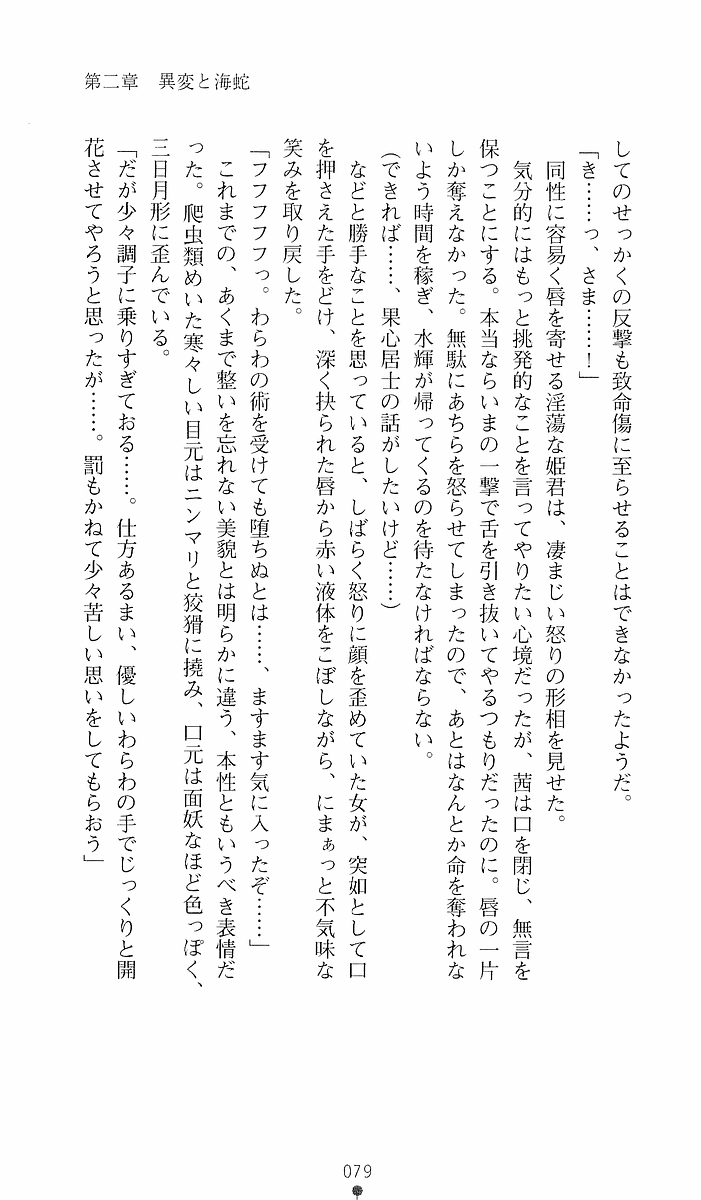 第二章　異変と海蛇
してのせっかくの反撃も致命傷に至らせることはできなかったようだ。
「き……っ、さま……！」
　同性に容易く唇を寄せる淫蕩な姫君は、凄まじい怒りの形相を見せた。
　気分的にはもっと挑発的なことを言ってやりたい心境だったが、茜は口を閉じ、無言を
保つことにする。本当ならいまの一撃で舌を引き抜いてやるつもりだったのに。唇の一片
しか奪えなかった。無駄にあちらを怒らせてしまったので、あとはなんとか命を奪われな
いよう時間を稼ぎ、水輝が帰ってくるのを待たなければならない。
（できれば……、果心居士の話がしたいけど……）
　などと勝手なことを思っていると、しばらく怒りに顔を歪めていた女が、突如として口
を押さえた手をどけ、深く抉られた唇から赤い液体をこぼしながら、にまぁっと不気味な
笑みを取り戻した。
「フフフフフっ。わらわの術を受けても堕ちぬとは……、ますます気に入ったぞ……」
　これまでの、あくまで整いを忘れない美貌とは明らかに違う、本性ともいうべき表情だ
った。爬虫類めいた寒々しい目元はニンマリと狡猾に撓み、口元は面妖なほど色っぽく、
三日月形に歪んでいる。
「だが少々調子に乗りすぎておる……。仕方あるまい、優しいわらわの手でじっくりと開
花させてやろうと思ったが……。罰もかねて少々苦しい思いをしてもらおう」
079